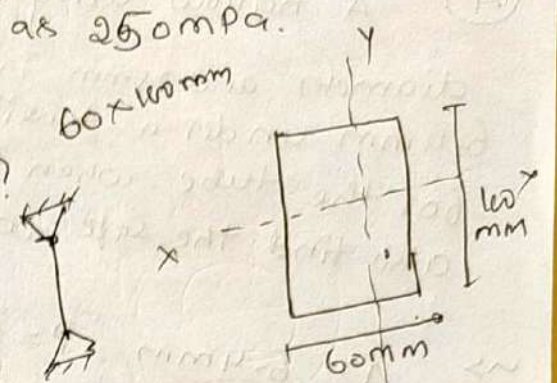 as 250mPa.
60×100mm
Y
X
100
mm
X
60mm